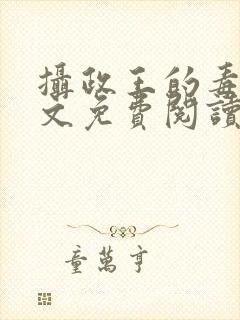 攝政王的毒
文免費閱讀
童萬亨